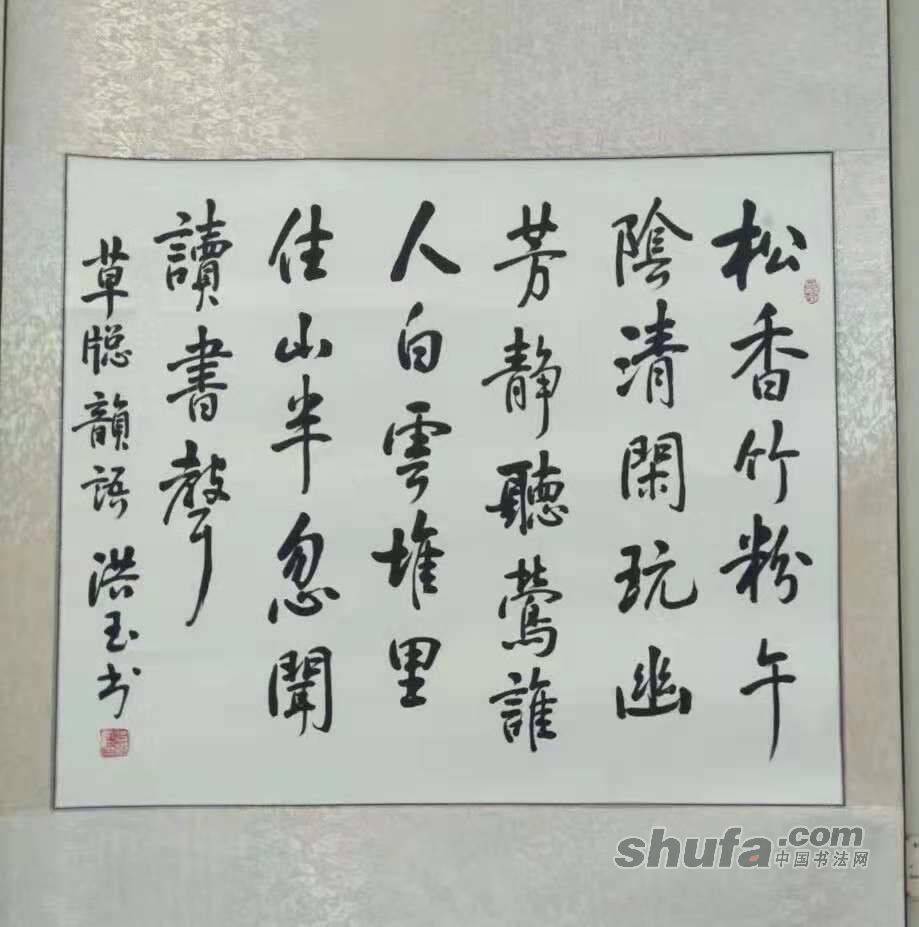 松香竹粉午
陰清閑玩幽
芳静聽鶯誰
人白雲堆里
住山半忽聞
讀書聲
草牕韻語 洪玉书
shufa.com
中国书法网